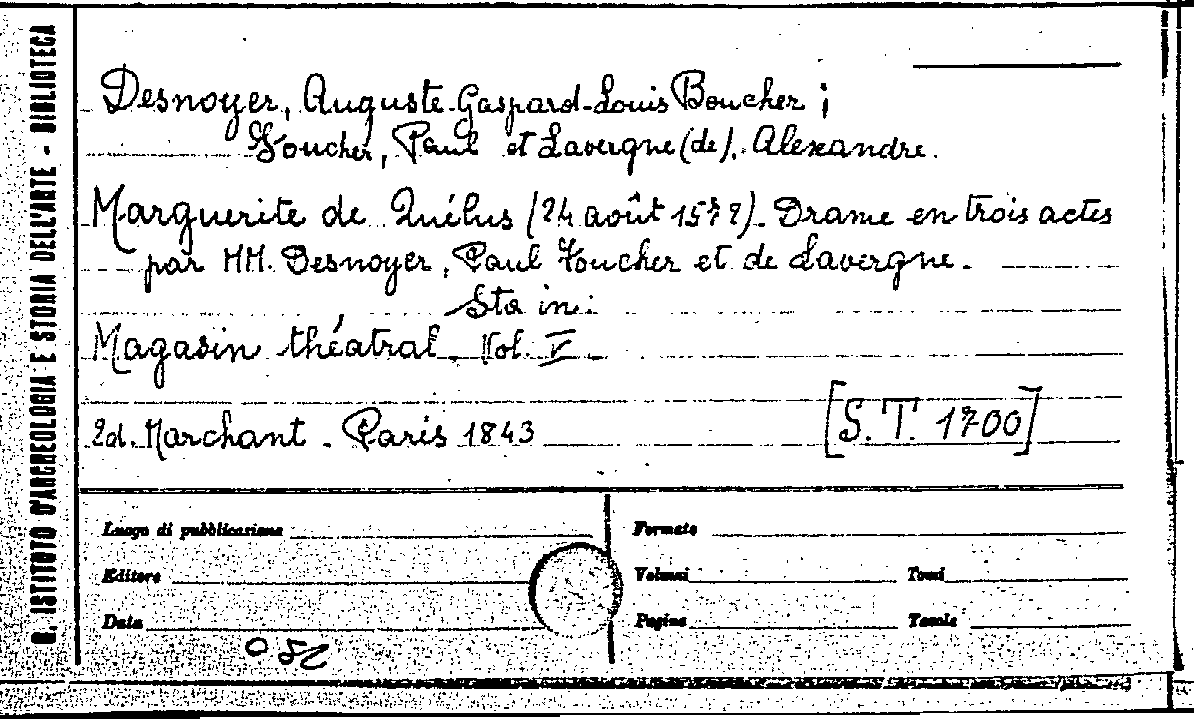 R. ISTITUTO D'ARCHEOLOGIA E STORIA DELL'ARTE - BIBLIOTECA
Desnoyer, Auguste-Gaspard-Louis Boucher ;
Foucher, Paul et Lavergne (de), Alexandre.
Marguerite de Quélus (24 août 1572). Drame en trois actes
par MM. Desnoyer, Paul Foucher et de Lavergne.
Sta in:
Magasin théatral. Vol. V
Ed. Marchant - Paris 1843
[S. T. 1700]
Luogo di pubblicazione
Formato
Editore
Volumi Tomi
Data
Pagine Tavole
082